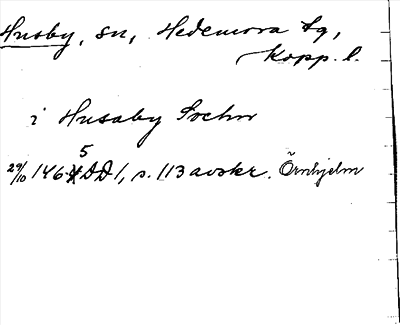 Husby, sn, Hedemora tg,
Kopp. l.
i Husaby Sochn
29/10 1465 DD 1, s. 113 avskr. Örnhjelm